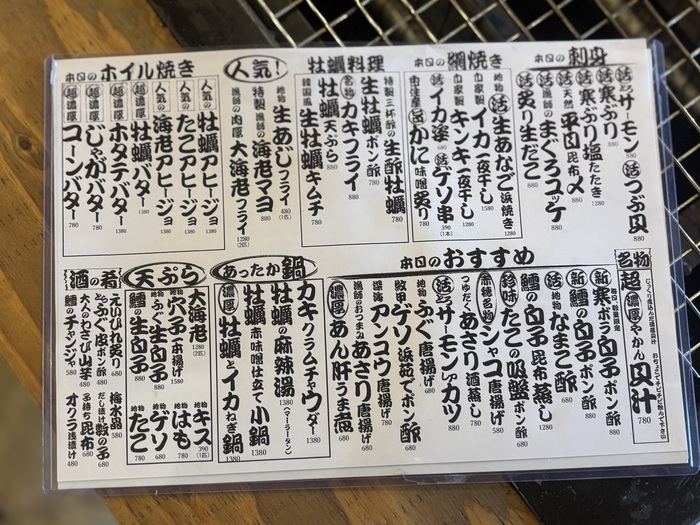 本日の刺身
活とろサーモン 880
活つぶ貝 880
活寒ぶり 880
活寒ぶり塩たたき 1280
天然平目昆布〆 880
漁師のまぐろユッケ 880
活炙り生だこ 880
本日の網焼き
地物活生あなご浜焼き 1280
自家製イカ一夜干し 1580
自家製キンキ一夜干し 1280
活イカ塗 680
活ゲソ串 390(1本)
かに味噌炙り 780
牡蠣料理
特製三杯酢の生酢牡蠣 780
生牡蠣ポン酢 780
名物カキフライ 880
牡蠣天ぷら 880
韓国風生牡蠣キムチ 780
人気!
地物生あじフライ 480(1匹)
特製漁師の海老マヨ 880
漁師の肉厚大海老フライ 1280(2匹)
本日のホイル焼き
人気の牡蠣アヒージョ 1380
人気のたこアヒージョ 1380
人気の海老アヒージョ 1380
超濃厚牡蠣バター 1380
超濃厚ホタテバター 1380
超濃厚じゃがバター 780
超濃厚コーンバター 780
名物
じっくり煮込んだ濃厚貝汁
超濃厚やかん貝汁 780
おちょこでチビチビ飲んで下さい
本日のおすすめ
新寒ボラ白子ポン酢 880
新鱈の白子ポン酢 880
活地物なまこ酢 680
鱈の白子昆布蒸し 1280
珍味たこの吸盤ポン酢 580
赤穂名物シャコ唐揚げ 580
つゆだくあさり酒蒸し 780
活とろサーモンレアカツ 880
地物ふぐ唐揚げ 680
数甲ゲソ浜茹でポン酢 680
深海アンコウ唐揚げ 780
漁師のおつまみあさり唐揚げ 780
濃厚あん肝うま煮 680
あったか鍋
カキクラムチャウダー 1380
牡蠣の麻辣湯(マーラータン) 1380
牡蠣赤味噌仕立て小鍋 1380
濃厚牡蠣とイカねぎ鍋 1380
天ぷら
大海老 1280(2匹)
地物穴子一本揚げ 1580
地物ふぐ生白子 880
鱈の生白子 880
地物キス 390(1匹)
地物はも 780
地物ゲソ 680
地物たこ 780
酒の肴
えいひれ炙り 680
とらふぐ皮ポン酢 480
大人のわさび山芋 480
鱈のチャンジャ 580
梅水晶 580
だし漬け数の子 680
子持ち昆布 680
オクラ浅漬け 480